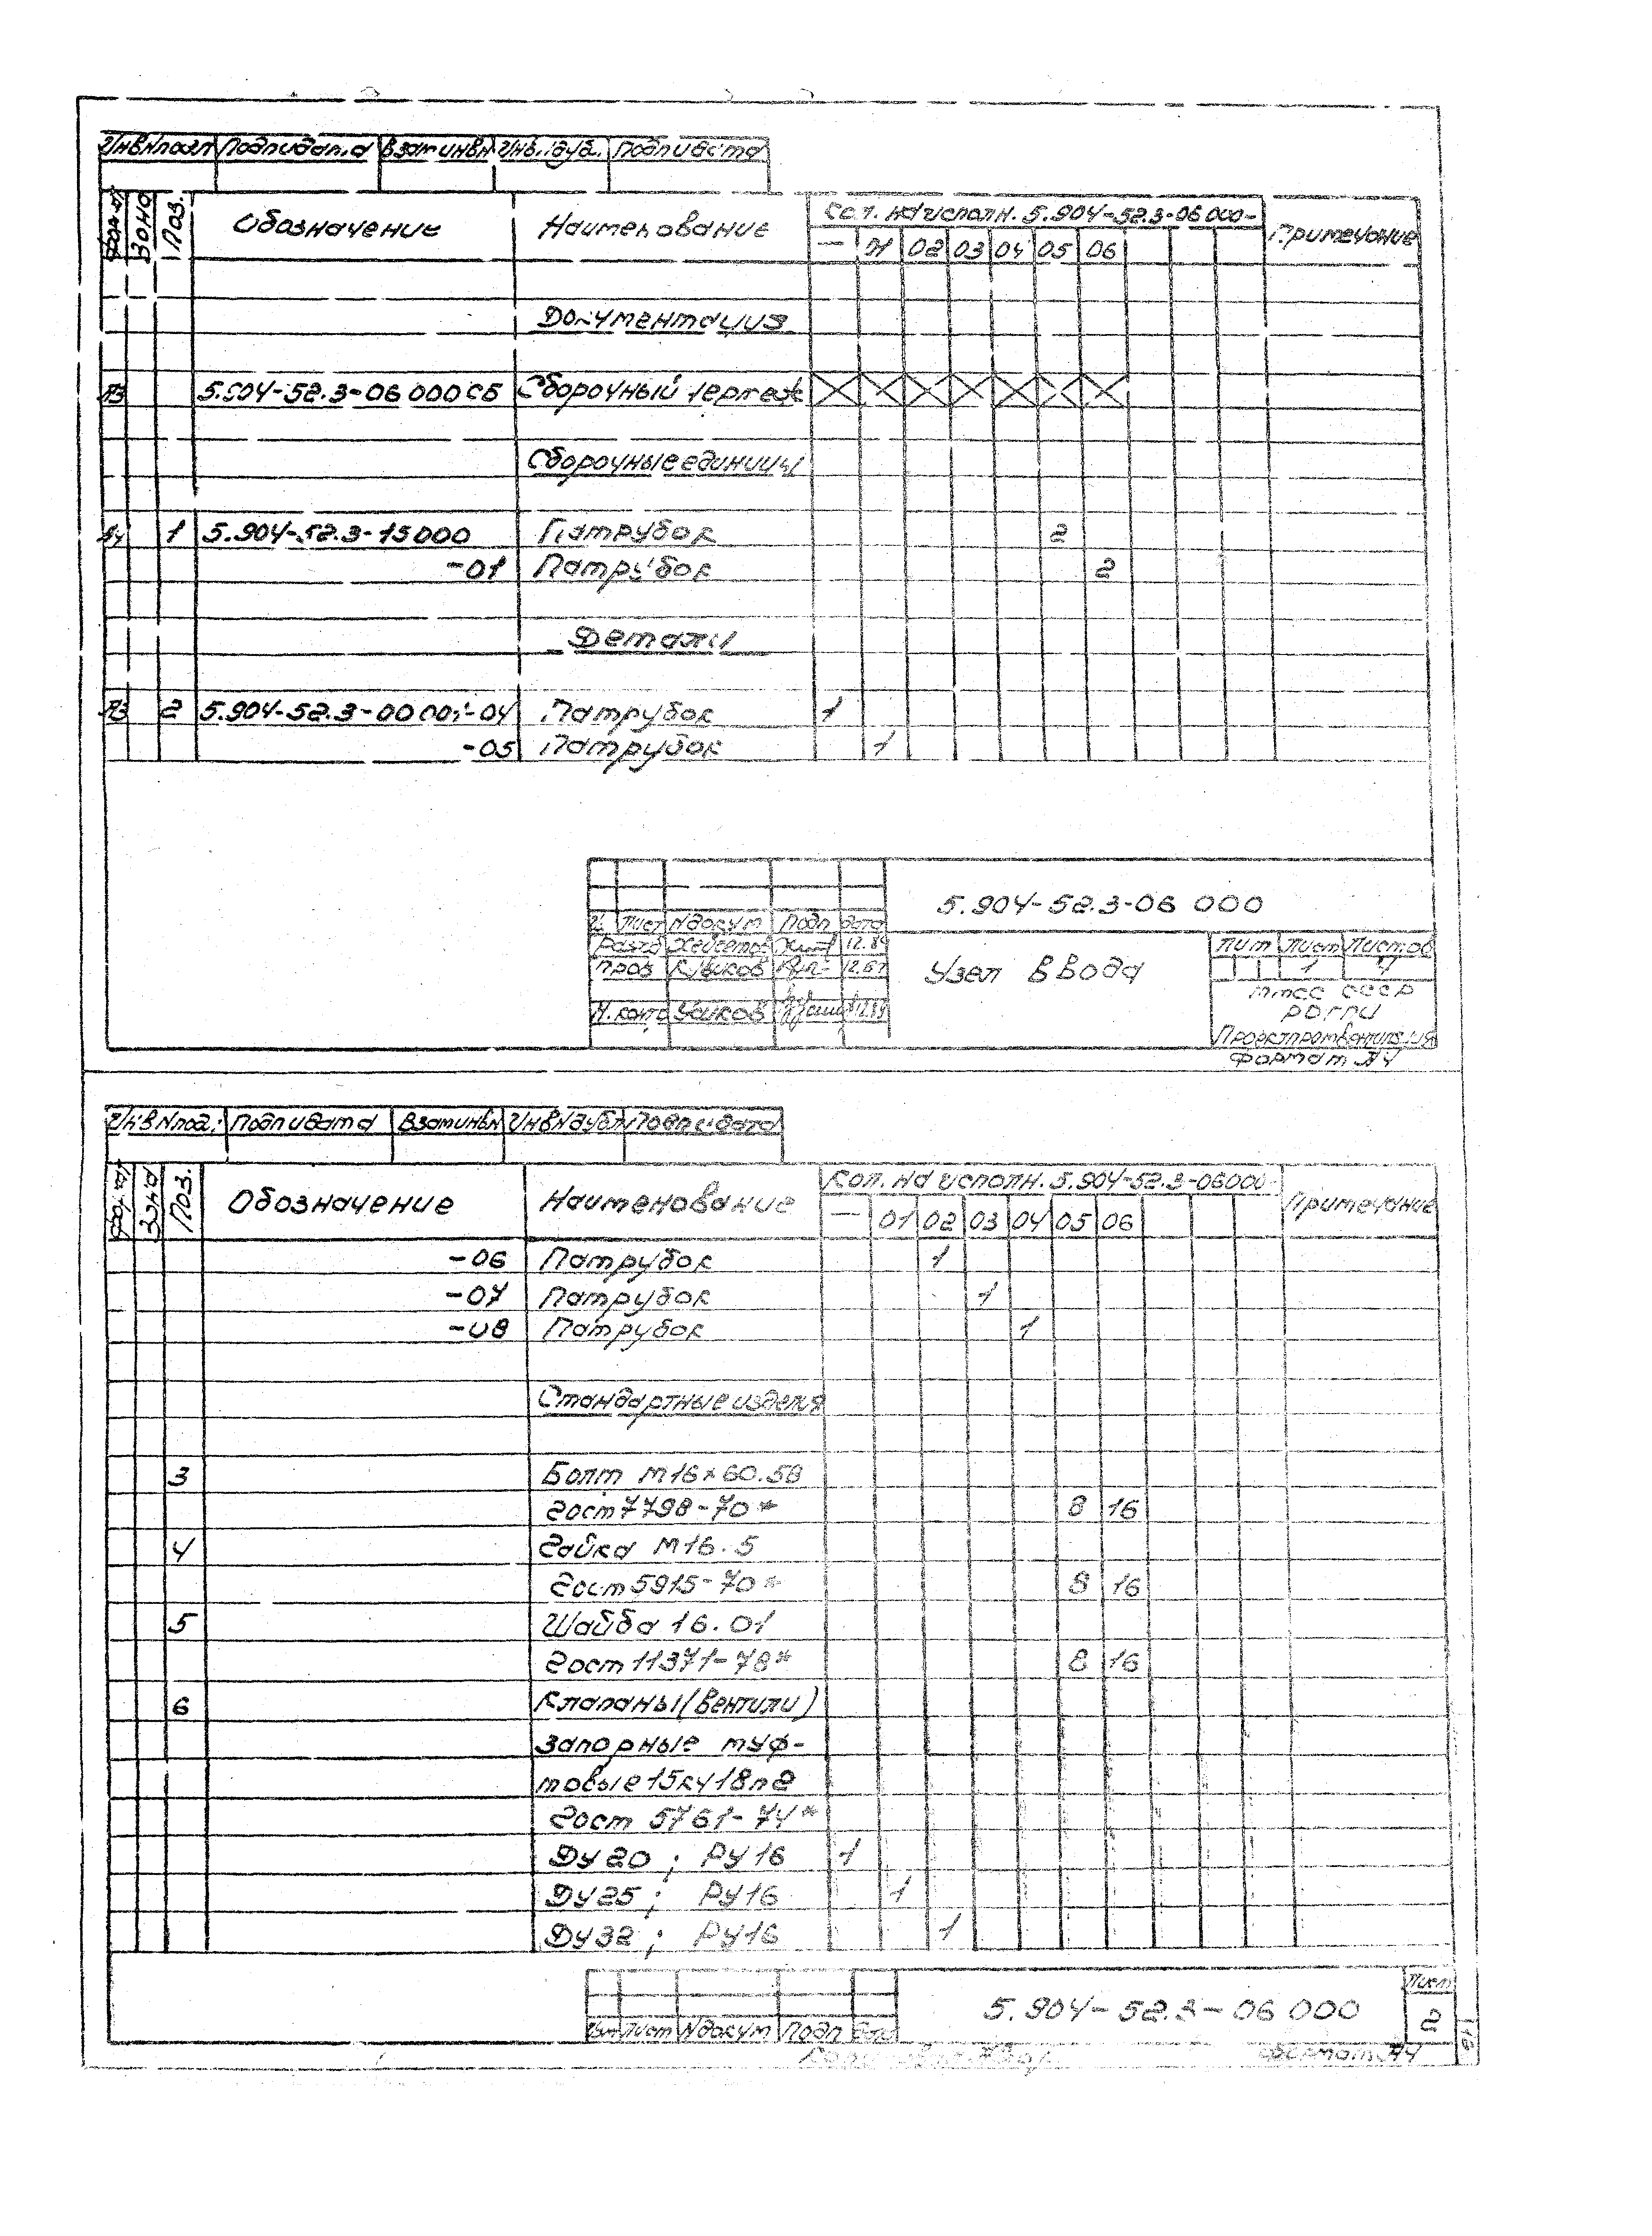 Инв N подл Подп и дата Взам инв N Инв. N дуб. Подп и дата
Формат Зона Поз. Обозначение Наименование Кол. на исполн. 5.904-52.3-06 000- Примечание
— 01 02 03 04 05 06
Документация
А3 5.904-52.3-06 000 СБ Сборочный чертеж
Сборочные единицы
А4 1 5.904-52.3-15 000 Патрубок 2
-01 Патрубок 2
Детали
А3 2 5.904-52.3-00 001-04 Патрубок 1
-05 Патрубок 1
5.904-52.3-06 000
Лист N докум Подп Дата
Разраб 12.89
Узел ввода
Лит Лист Листов
Пров 12.89
1 4
ММСС СССР
Н. контр Усиков 12.89
РОГПИ
Проектпромвентиляция
Формат А4
Инв N подл. Подп и дата Взам инв N Инв N дубл Подп и дата
Формат Зона Поз. Обозначение Наименование Кол. на исполн. 5.904-52.3-06 000- Примечание
— 01 02 03 04 05 06
-06 Патрубок 1
-07 Патрубок 1
-08 Патрубок 1
Стандартные изделия
3 Болт М16×60.58
Гост 7798-70* 8 16
4 Гайка М16.5
Гост 5915-70* 8 16
5 Шайба 16.01
Гост 11371-78* 8 16
6 Клапаны (вентили)
запорные муф-
товые 15кч18п2
Гост 5761-74*
Ду 20 ; Ру 16 1
Ду 25 ; Ру 16 1
Ду 32 ; Ру 16 1
5.904-52.3-06 000
Лист
2
Изм Лист N докум Подп Дата
Формат А4